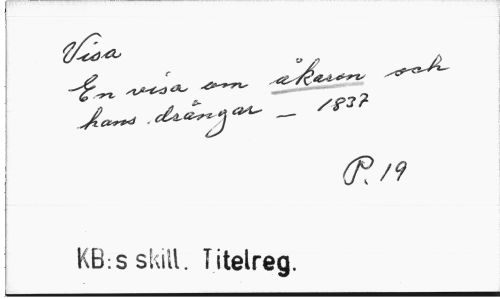 Visa
En visa om åkaren och
hans drängar — 1837
P. 19
KB:s skill. Titelreg.